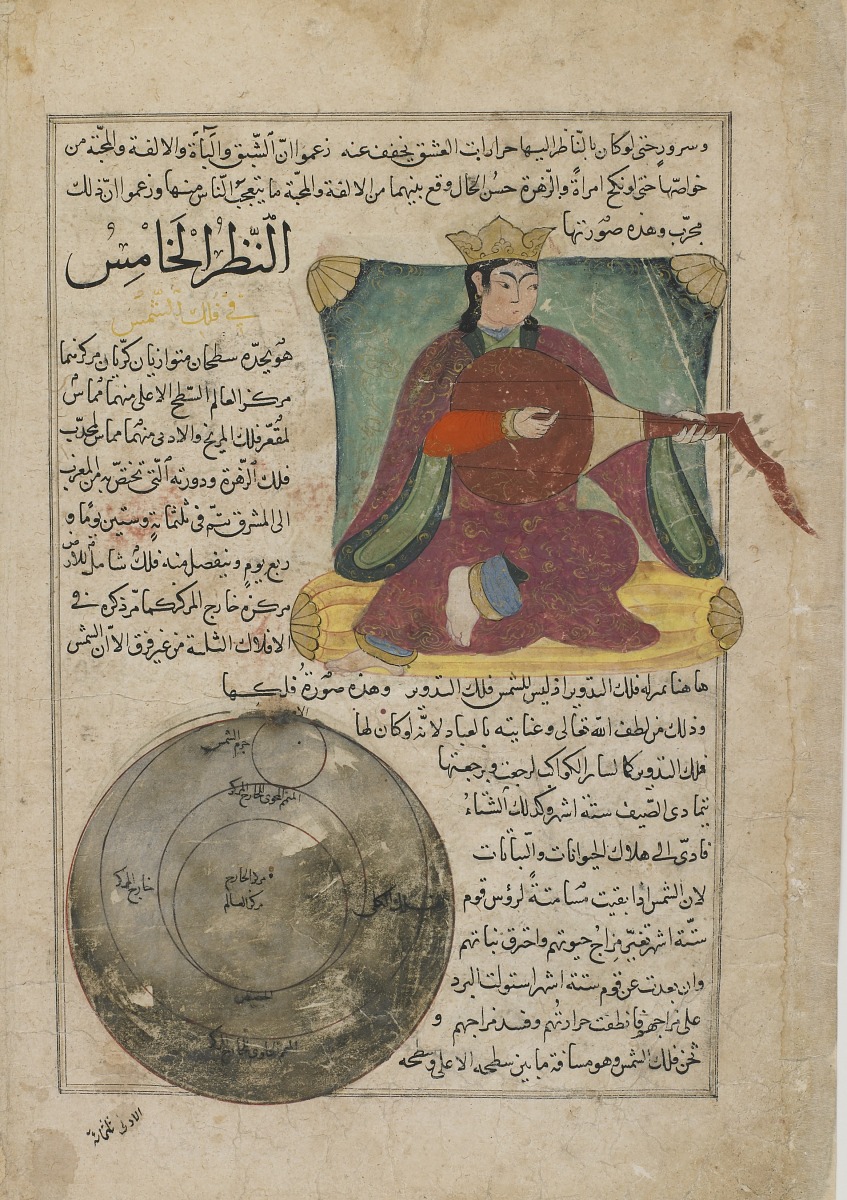 وسرور حتى لو كان بالناظر اليها حرارات العشق يخفف عنه زعموا انّ الشبق والباءة والالفة والمحبّة من
خواصّها حتى لو نكح امراة والزهرة حسن الحال وقع بينهما من الالفة والمحبّة ما يتعجب الناس منها وزعموا انّ ذلك
مجرّب وهذه صورتها
النّظر الخامس
في فلك الشّمس
هو يحدّه سطحان متوازيان كريان مركزهما
مركز العالم السّطح الاعلى منهما مماس
لمقعّر فلك المريخ والادنى منهما مماس لمحدّب
فلك الزّهرة ودورته الّتي تختصّ به من المغرب
الى المشرق تتم في ثلثماية وستين يوما و
ربع يوم وينفصل منه فلك شامل للارض
مركزه خارج المركز كما مرّ ذكره في
الافلاك الثلثة من غير فرق الا انّ الشمس
هاهنا بمنزلة فلك التدوير اذ ليس للشمس فلك التدوير وهذه صورة فلكها
وذلك من لطف الله تعالى وعنايته بالعباد لانه لو كان لها
فلك التدوير كما لسائر الكواكب لرجعت وبرجعتها
يتمادى الصّيف ستة اشهر وكذلك الشتاء
فادّى الى هلاك الحيوانات والنباتات
لان الشمس اذا بقيت مسامتة لرؤس قوم
ستّة اشهر تغيّر مزاج حيوتهم واحترق نباتهم
وان بعدت عن قوم ستة اشهر استولت البرد
على مزاجهم فانطفت حرارتهم وفسد مزاجهم و
ثخن فلك الشمس وهو مسافة ما بين سطحه الاعلى وسطحه
جرم الشمس
المتمم المحوى الخارج المركز
خارج المركز
مركز الخارج
مركز العالم
الفلك الكلى
الحضيض
المتمم الحاوى لخارج المركز
الادنى ثلثماية